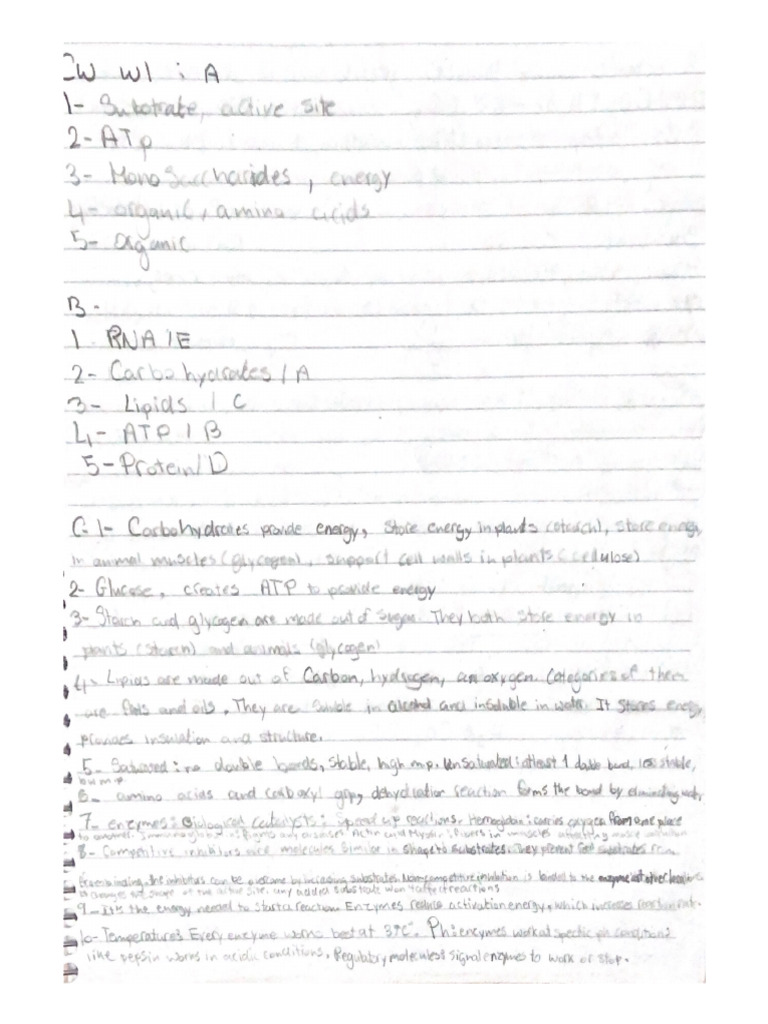 CW W1 : A
1- Substrate, active site
2- ATp
3- Monosaccharides, energy
4- organic, amino acids
5- Organic
B -
1 RNA / E
2- Carbohydrates / A
3- Lipids / C
4- ATP / B
5- Protein / D
C. 1- Carbohydrates provide energy, store energy in plants (starch), store energy
in animal muscles (glycogen), support cell walls in plants (cellulose)
2- Glucose, creates ATP to provide energy
3- Starch and glycogen are made out of sugar. They both store energy in
plants (starch) and animals (glycogen)
4- Lipids are made out of Carbon, hydrogen, an oxygen. Categories of them
are fats and oils. They are soluble in alcohol and insoluble in water. It stores energy,
provides insulation and structure.
5- Saturated: no double bonds, stable, high mp. Unsaturated: atleast 1 double bond, less stable,
low mp
6- amino acids and carboxyl grp, dehydration reaction forms the bond by eliminating water
7- enzymes: Biological catalysts: Speed up reactions. Hemoglobin: carries oxygen from one place
to another. Immunoglobulins: Fights any diseases Actin and Myosin: Fibers in muscles
8- Competitive inhibitors are molecules similar in shape to substrates. They prevent substrates from
from binding. the inhibitors can be overcome by increasing substrates. Non-competitive inhibition is bonded to the enzyme at other location
changes the shape of the active site, any added substrate won't affect reactions
9- It's the energy needed to start a reaction. Enzymes reduce activation energy, which increases reaction rate.
10- Temperature: Every enzyme works best at 37C°. Ph: enzymes work at specific ph conditions
like pepsin works in acidic conditions. Regulatory molecules: signal enzymes to work or stop.